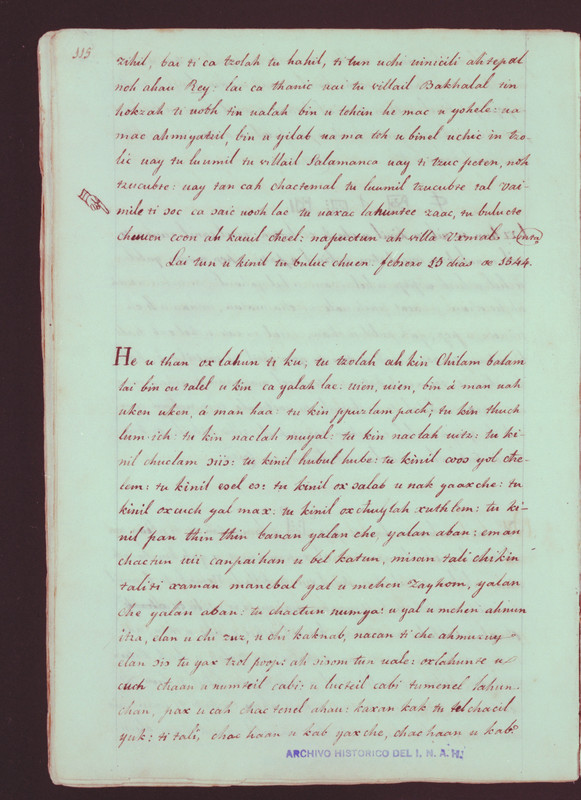 115
zihil, bai ti ca tzolah tu hahil, ti tun uchi uinicili ah tepal
noh ahau Rey: lai ca thanic uai tu villail Bakhalal tin
hokzah ti uooh tin ualah bin u tchcin he mac u yohele: ua
mac ahmiyatzil, bin u yilab ua ma toh u binel uchic in tzo-
lic uay tu luumil tu villail Salamanca uay ti tzuc peten, noh
tzucubte: uay tan cah chactemal tu luumil tzucubte tal vai-
mile ti soc ca saic uooh lae tu uaxac lahuntee zaac, tu buluc te
chuuen ccon ah kauil cheel: napuctun ah villa Vxmal
Lai tun u kinil tu buluc chuen. febrero 15 dias de 1544.
He u than oxlahun ti ku, tu tzolah ah kin Chilam balam
lai bin ou talel u kin ca yalah lae: uien, uien, bin á man uah
uken uken, á man haa: tu kin ppuzlam pach; tu kin thuch
lum-ich: tu kin naclah muyal: tu kin naclah uitz: tu ki-
nil chuclam siis: tu kinil hubul hube: tu kinil coos yol che-
lem: tu kinil esel es: tu kinil ox salab u nak yaaxche: tu
kinil oxcuch yal max: tu kinil ox chuytah xuthlem: tu ki-
nil pan thin thin banan yalan che, yalan aban: eman
chactun uii canpaihan u bel katun, misan tali chikin
taliti xaman mancbal yal u mehen zayhom, yalan
che yalan aban: tu chactun numya: u yal u mehen ahnun
itza, elan u chi zuz, u chi kaknab, nacan ti che
elan sis tu yax tzol poop: ah sisom tun uale: oxlahunte u
cuch chaan a numteil cabi: u lucteil cabi tumenel lahun-
chan, pax u cah chac tenel ahau: kaxan kak tu tel chacil
yuk: ti tali, chac haan u kab yaxche, chac haan u kab
ARCHIVO HISTORICO DEL I. N. A. H.